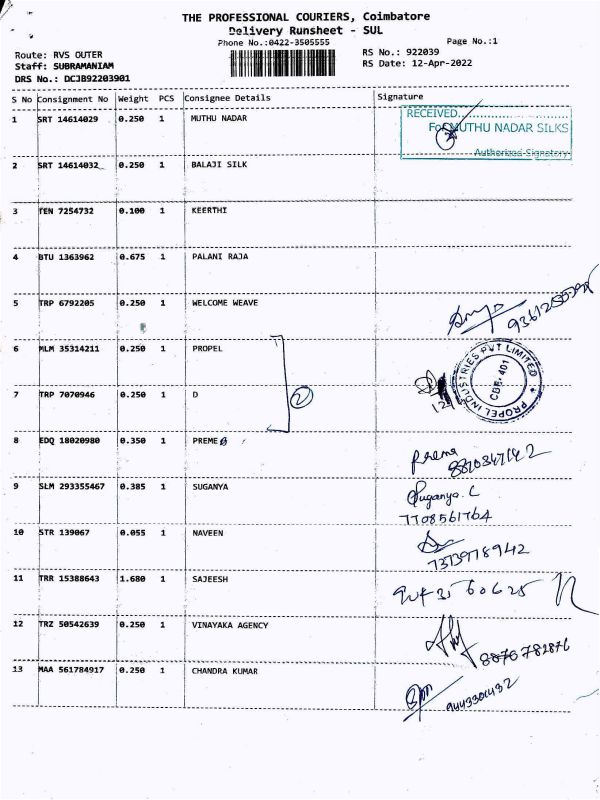 THE PROFESSIONAL COURIERS, Coimbatore
Delivery Runsheet - SUL
Phone No.:0422-3505555 Page No.:1
Route: RVS OUTER RS No.: 922039
Staff: SUBRAMANIAM RS Date: 12-Apr-2022
DRS No.: DCJB92203901
S No Consignment No Weight PCS Consignee Details Signature
1 SRT 14614029 0.250 1 MUTHU NADAR
RECEIVED
For MUTHU NADAR SILKS
Authorized Signatory
2 SRT 14614032 0.250 1 BALAJI SILK
3 TEN 7254732 0.100 1 KEERTHI
4 BTU 1363962 0.675 1 PALANI RAJA
5 TRP 6792205 0.250 1 WELCOME WEAVE
6 MLM 35314211 0.250 1 PROPEL
PROPEL INDUSTRIES PVT LIMITED
CBE- 401
7 TRP 7070946 0.250 1 D
2
8 EDQ 18020980 0.350 1 PREME
Prema
9 SLM 293355467 0.385 1 SUGANYA
Suganya. C
7708561764
10 STR 139067 0.055 1 NAVEEN
11 TRR 15388643 1.680 1 SAJEESH
60625
12 TRZ 50542639 0.250 1 VINAYAKA AGENCY
8870782876
13 MAA 561784917 0.250 1 CHANDRA KUMAR